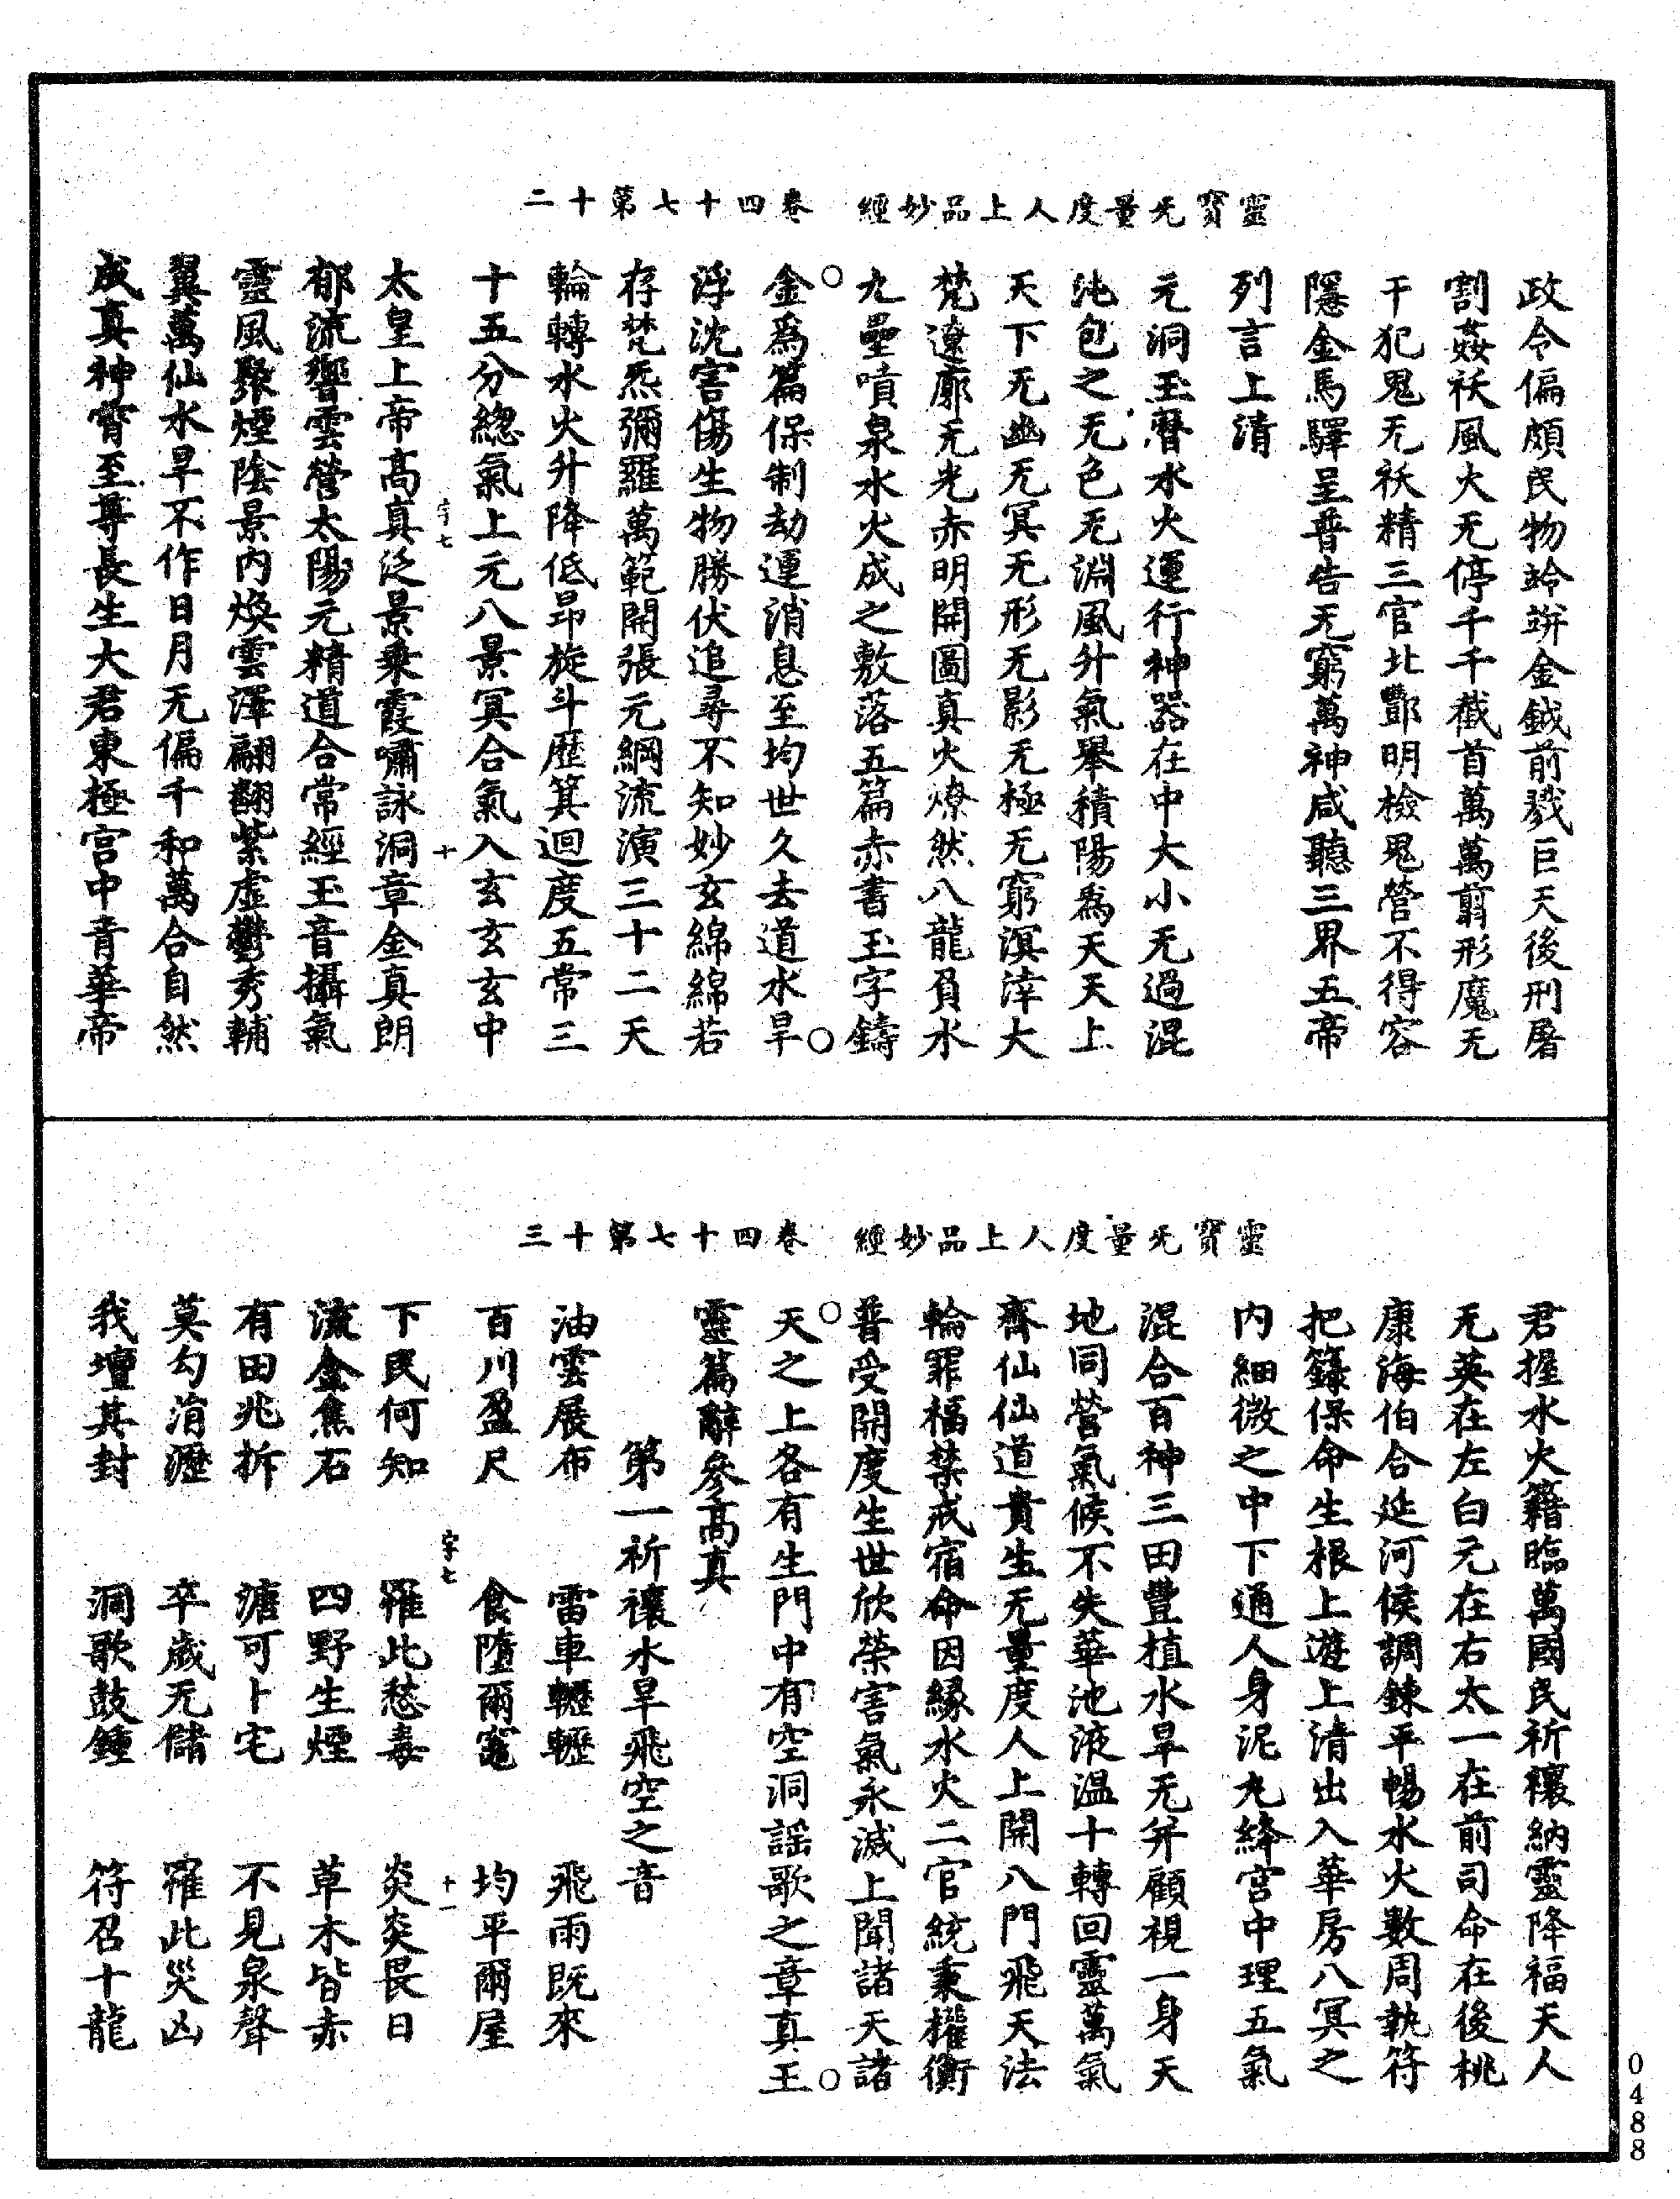 靈寶无量度人上品妙經 卷四十七第十二
政令偏頗民物竛竮金鉞前戮巨天後刑屠
割姦祅風火无停千千截首萬萬剪形魔无
干犯鬼无祅精三官北酆明檢鬼營不得容
隱金馬驛呈普告无窮萬神咸聽三界五帝
列言上清
元洞玉曆水火運行神器在中大小无過混
沌包之无色无淵風升氣舉積陽為天天上
天下无幽无冥无形无影无極无窮溟涬大
梵遼廓无光赤明開圖真火燎然八龍負水
九壘噴泉水火成之敷落五篇赤書玉字鑄
金為篇保制劫運消息至均世久去道水旱
浮沈害傷生物勝伏追尋不知妙玄綿綿若
存梵炁彌羅萬範開張元綱流演三十二天
輪轉水火升降低昂旋斗歷箕迴度五常三
十五分總氣上元八景冥合氣入玄玄玄中
太皇上帝高真泛景乘霞嘯詠洞章金真朗
字七 十
郁流響雲營太陽元精道合常經玉音攝氣
靈風聚煙陰景內煥雲澤翩翻紫虛鬱秀輔
翼萬仙水旱不作日月无偏千和萬合自然
成真神霄至尊長生大君東極宮中青華帝
靈寶无量度人上品妙經 卷四十七第十三
君握水火籍臨萬國民祈禳納靈降福天人
无英在左白元在右太一在前司命在後桃
康海伯合延河侯調鍊平暢水火數周執符
把籙保命生根上遊上清出入華房八冥之
内細微之中下通人身泥丸絳宮中理五氣
混合百神三田豐植水旱无并顧視一身天
地同營氣候不失華池液溫十轉回靈萬氣
齊仙仙道貴生无量度人上開八門飛天法
輪罪福禁戒宿命因緣水火二官統秉權衡
普受開度生世欣榮害氣永滅上聞諸天諸
天之上各有生門中有空洞謠歌之章真王
靈篇辭參高真
第一祈禳水旱飛空之音
油雲展布 雷車轣轣 飛雨既來
百川盈尺 食墮爾竈 均平爾屋
字七 十一
下民何知 罹此愁毒 炎炎畏日
流金焦石 四野生煙 草木皆赤
有田兆拆 溏可卜宅 不見泉聲
莫勺涓瀝 卒歲无儲 罹此災凶
我壇其封 洞歌鼓鍾 符召十龍
0488